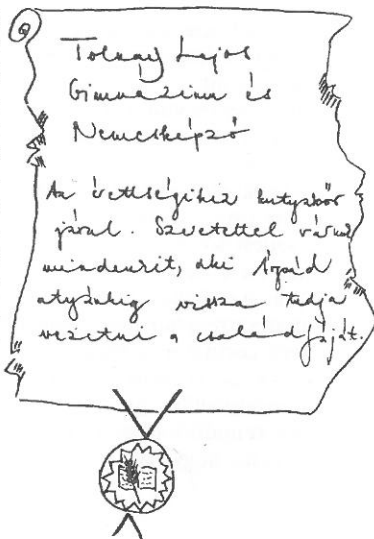 Tolnay Lajos
Gimnázium és
Nemesképző
Az érettségihez kutyabőr
járul. Szeretettel várunk
mindenkit, aki Árpád
atyánkig vissza tudja
vezetni a családfáját.